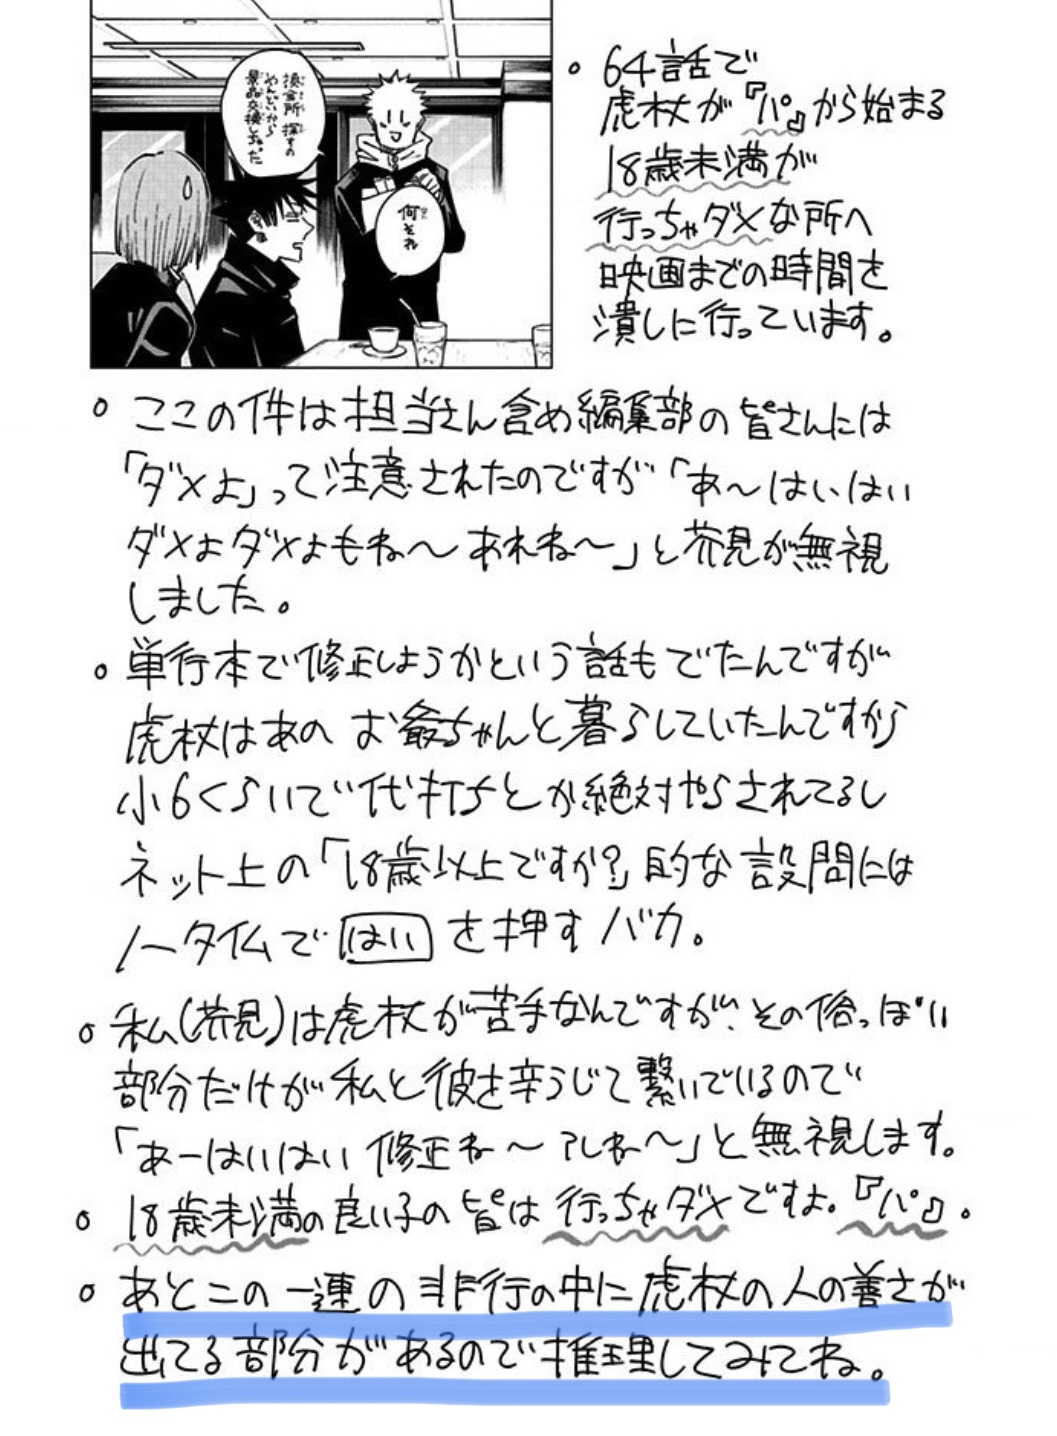 換金所 探すの
めんどいから
景品交換しちゃった
何それ
。64話で
虎杖が『パ』から始まる
18歳未満が
行っちゃダメな所へ
映画までの時間を
潰しに行っています。
。ここの件は担当さん含め編集部の皆さんには
「ダメよ」って注意されたのですが「あ〜はいはい
ダメよダメよもね〜あれね〜」と芥見が無視
しました。
。単行本で修正しようかという話もでたんですが
虎杖はあのお爺ちゃんと暮らしていたんですから
小6くらいで代打ちとか絶対やらされてるし
ネット上の「18歳以上ですか?」的な設問には
ノータイムではいを押すバカ。
。私(芥見)は虎杖が苦手なんですが、その俗っぽい
部分だけが私と彼を辛うじて繋いでいるので
「あーはいはい 修正ね〜アレね〜」と無視します。
。18歳未満の良い子の皆は行っちゃダメですよ。『パ』。
。あとこの一連の非行の中に虎杖の人の善さが
出てる部分があるので推理してみてね。